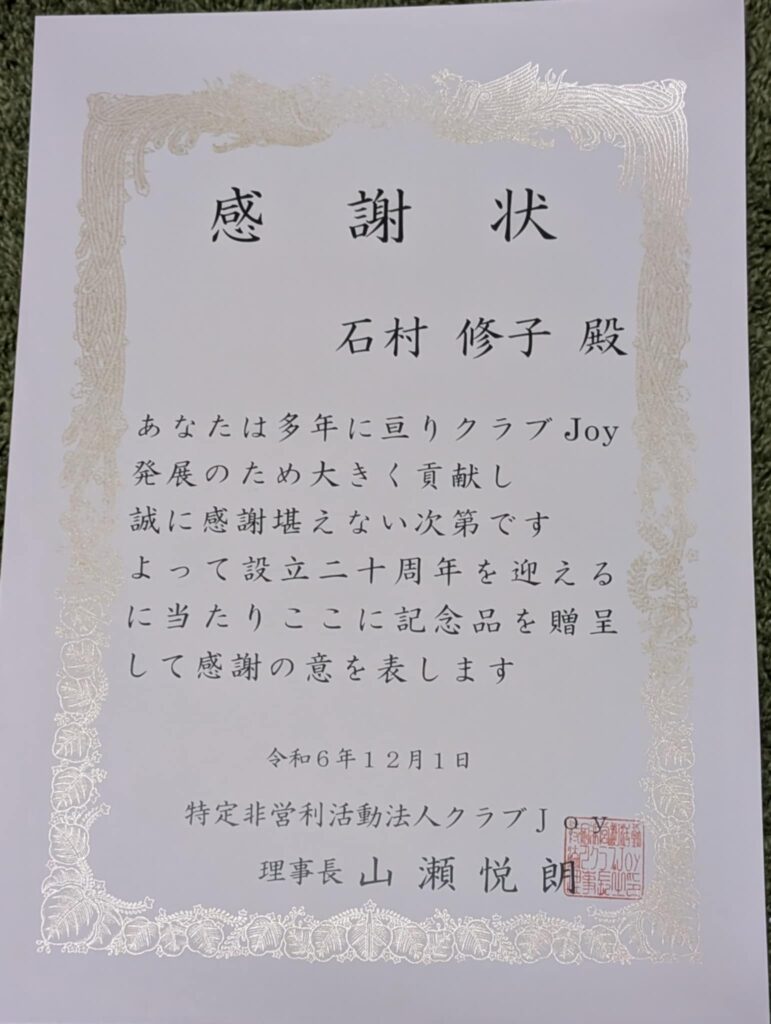 感謝状
石村 修子 殿
あなたは多年に亘りクラブJoy
発展のため大きく貢献し
誠に感謝堪えない次第です
よって設立二十周年を迎える
に当たりここに記念品を贈呈
して感謝の意を表します
令和6年12月1日
特定非営利活動法人クラブJoy
理事長 山瀬悦朗